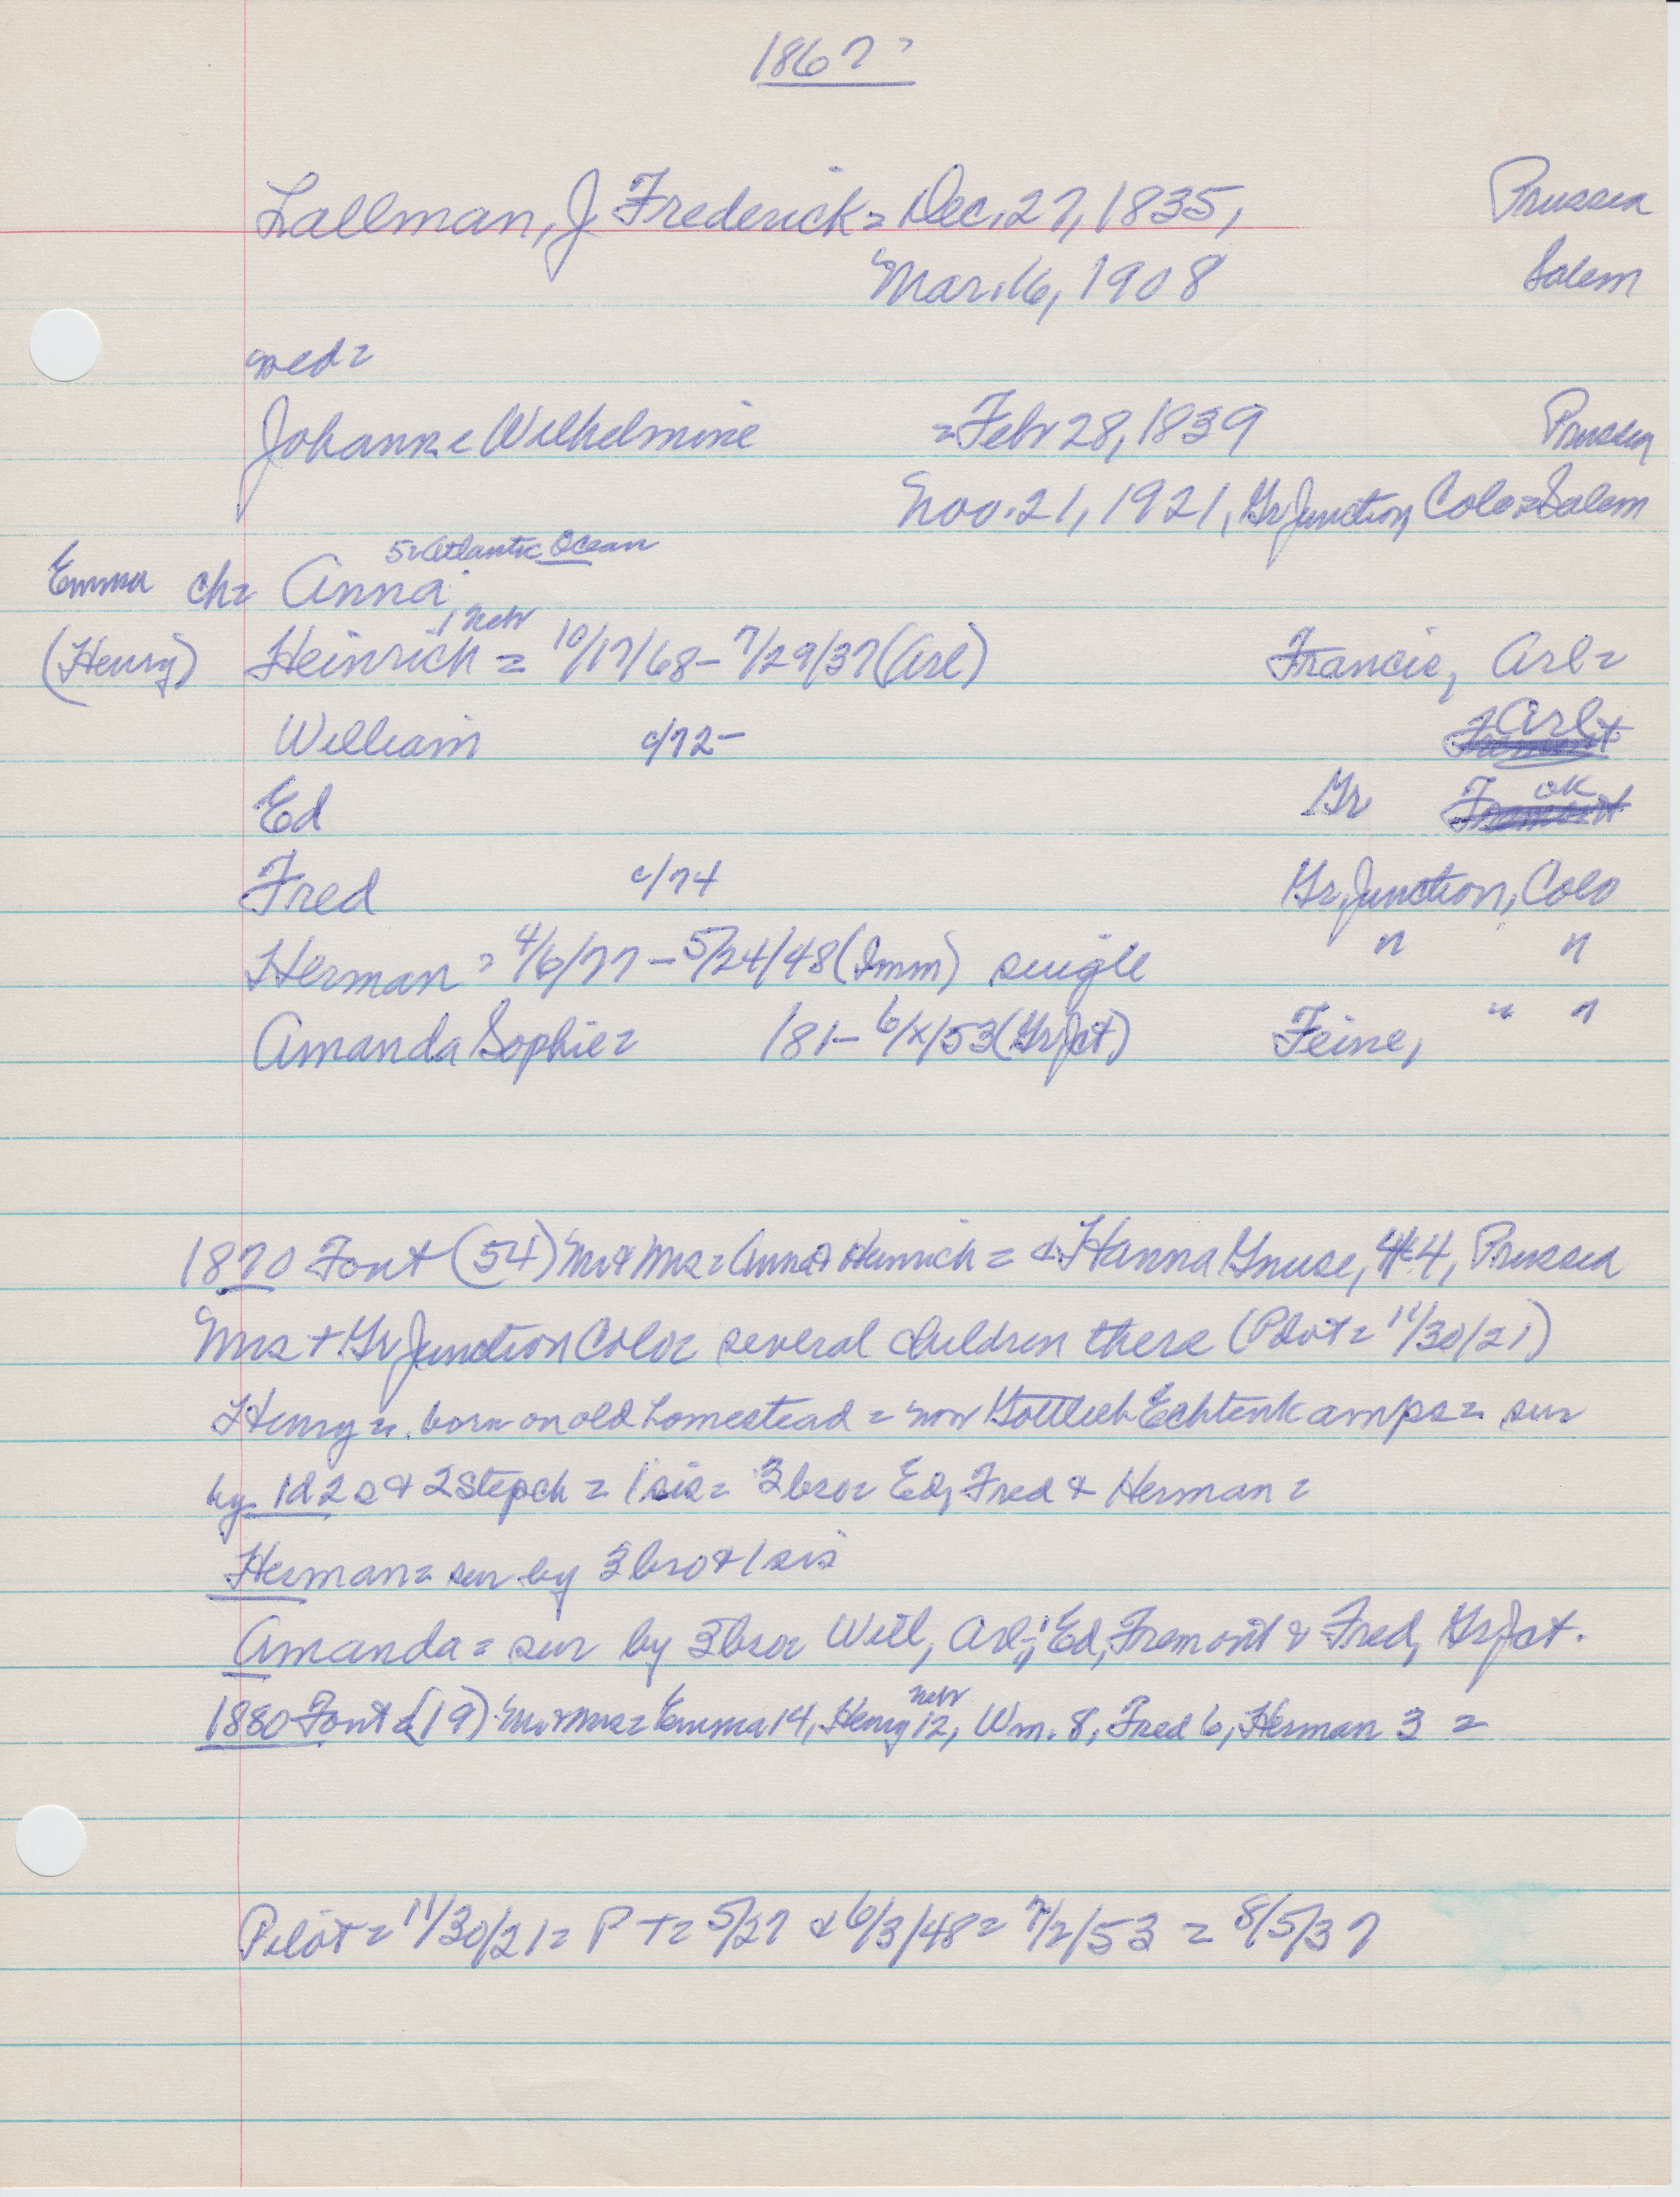 1867?
Lallman, J Frederick = Dec. 27, 1835, Prussia
Mar. 16, 1908 Salem
wed =
Johanne Wilhelmine = Febr 28, 1839 Prussia
Nov. 21, 1921, Gr Junction, Colo = Salem
5 = Atlantic Ocean
Emma ch = Anna
1 Nebr
(Henry) Heinrich = 10/17/68 - 7/29/37 (Arl) Francis, Arl =
William c/72 - Arl
Ed Gr ok
Fred c/74 Gr Junction, Colo
Herman = 4/6/77 - 5/24/48 (Imm) single " "
Amanda Sophie = /81 - 6/x/53 (Gr Jct) Feine, " "
1870 Font (54) Mr & Mrs = Anna & Heinrich = & Hanna Gnuse, 4, Prussia
Mrs + Gr Junction Colo = several children there (Pilot = 11/30/21)
Henry = born on old homestead = now Gottlieb Echtenkamps = sur
by 1d 2s & 2 stepch = 1 sis = 3 bro = Ed, Fred & Herman =
Herman = sur by 3 bro & 1 sis
Amanda = sur by 3 bro = Will, Arl; Ed, Fremont & Fred, Gr Jct.
nebr
1880 Font (19) Mr & Mrs = Emma 14, Henry 12, Wm. 8, Fred 6, Herman 3 =
Pilot = 11/30/21 = P T = 5/27 & 6/3/48 = 7/2/53 = 8/5/37